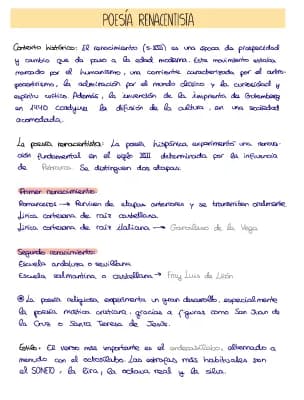 POESÍA RENACENTISTA
Contexto histórico: El renacimiento (s.XVI) es una época de prosperidad
y cambio que da paso a la edad moderna. Este movimiento estaba
marcado por el humanismo, una corriente caracterizada por el antro-
pocentrismo, la admiración por el mundo clásico y la curiosidad y
espíritu crítico. Además, la invención de la imprenta de Gutemberg
en 1440 coadyuva la difusión de la cultura en una sociedad
acomodada.
La poesía renacentista: La poesía hispánica experimentó una renova-
ción fundamental en el siglo XVI determinada por la influencia
de Petrarca. Se distinguen dos etapas:
Primer renacimiento:
Romanceros → Perviven de etapas anteriores y se transmiten oralmente
Lírica cortesana de raíz castellana.
Lírica cortesana de raíz italiana → Garcilaso de la Vega
Segundo renacimiento:
Escuela andaluza o sevillana
Escuela salmantina o castellana → Fray Luis de León
La poesía religiosa experimenta un gran desarrollo, especialmente
la poesía mística cristiana, gracias a figuras como San Juan de
la Cruz o Santa Teresa de Jesús.
Estilo: El verso más importante es el endecasílabo, alternado a
menudo con el octosílabo. Las estrofas más habituales son
el SONETO, la lira, la octava real y la silva.